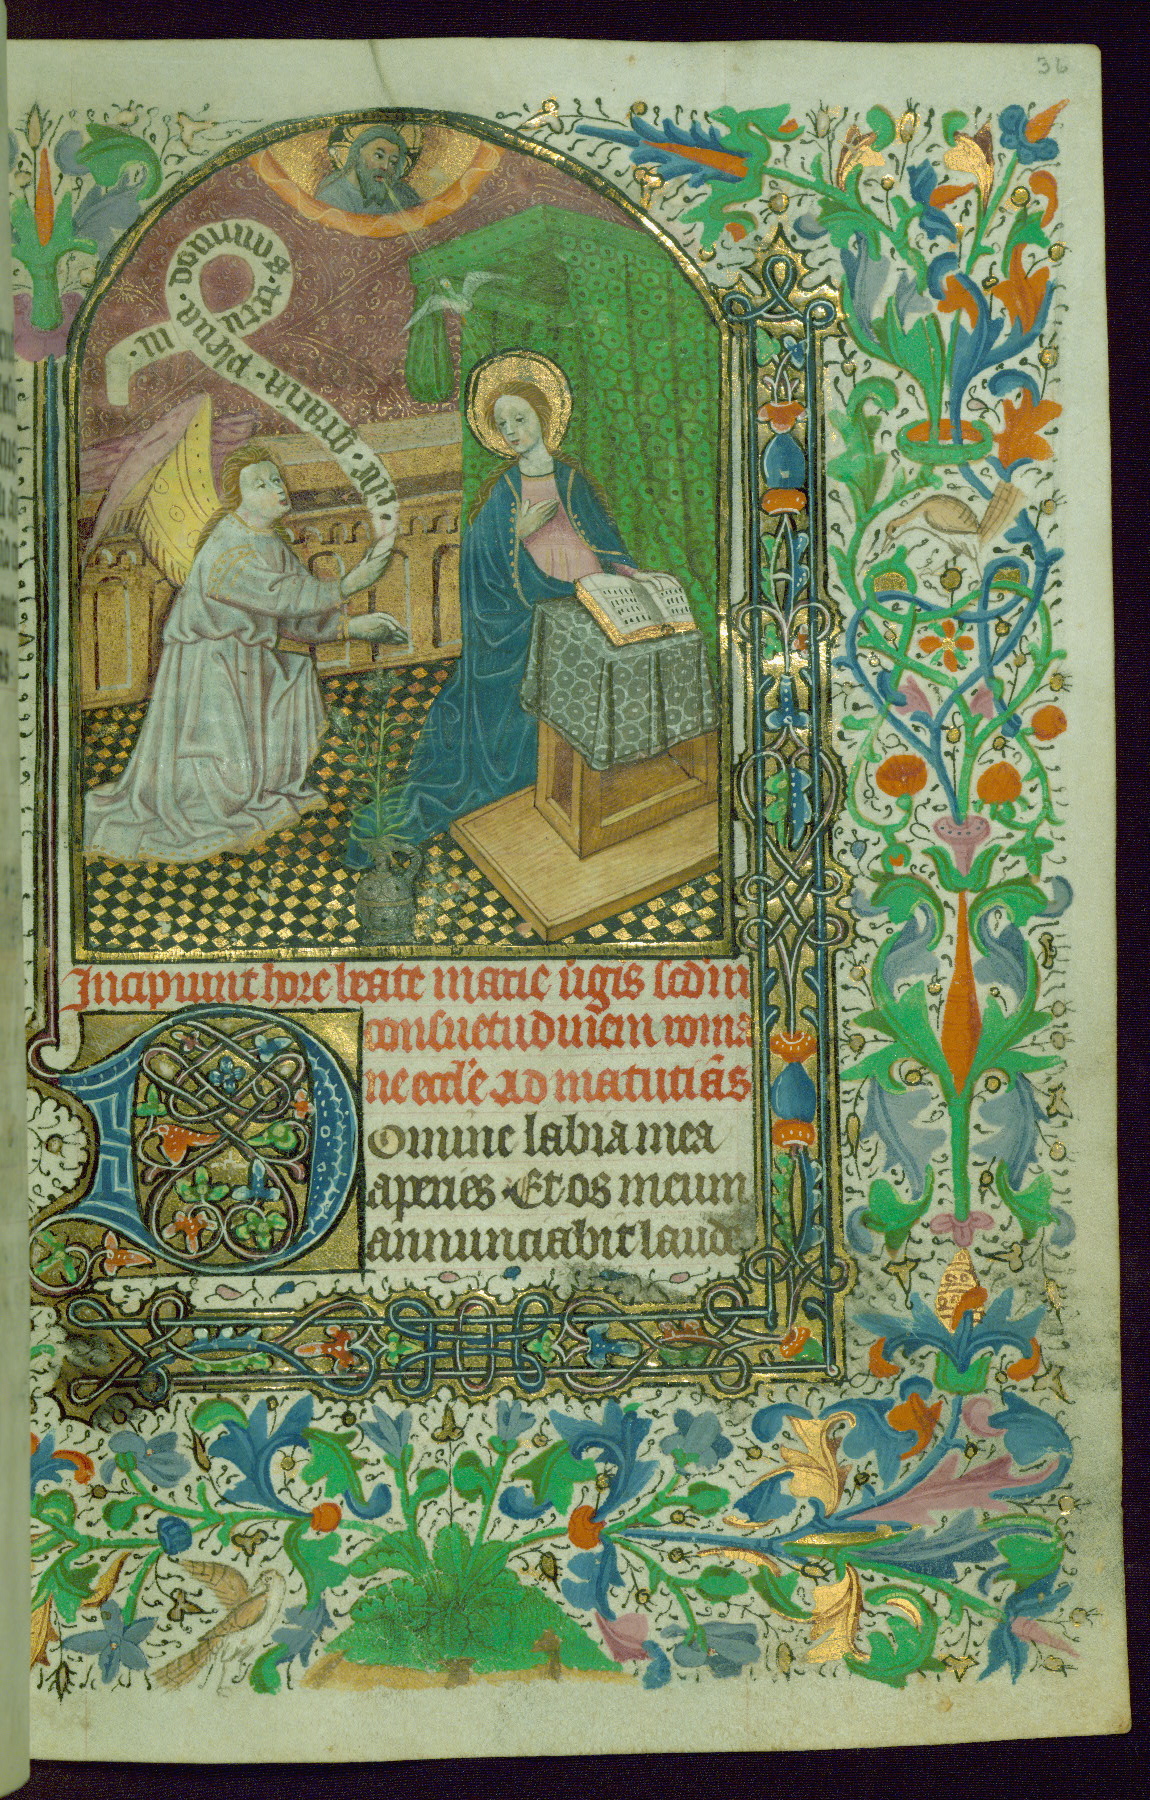 36
aue · gracia · plena · dominus · tecum
Incipiunt hore beate marie ūgis scdm
consuetudinem roma
ne eccl'e ad matutiās
Domine labia mea
aperies · Et os meum
annunciabit laudē